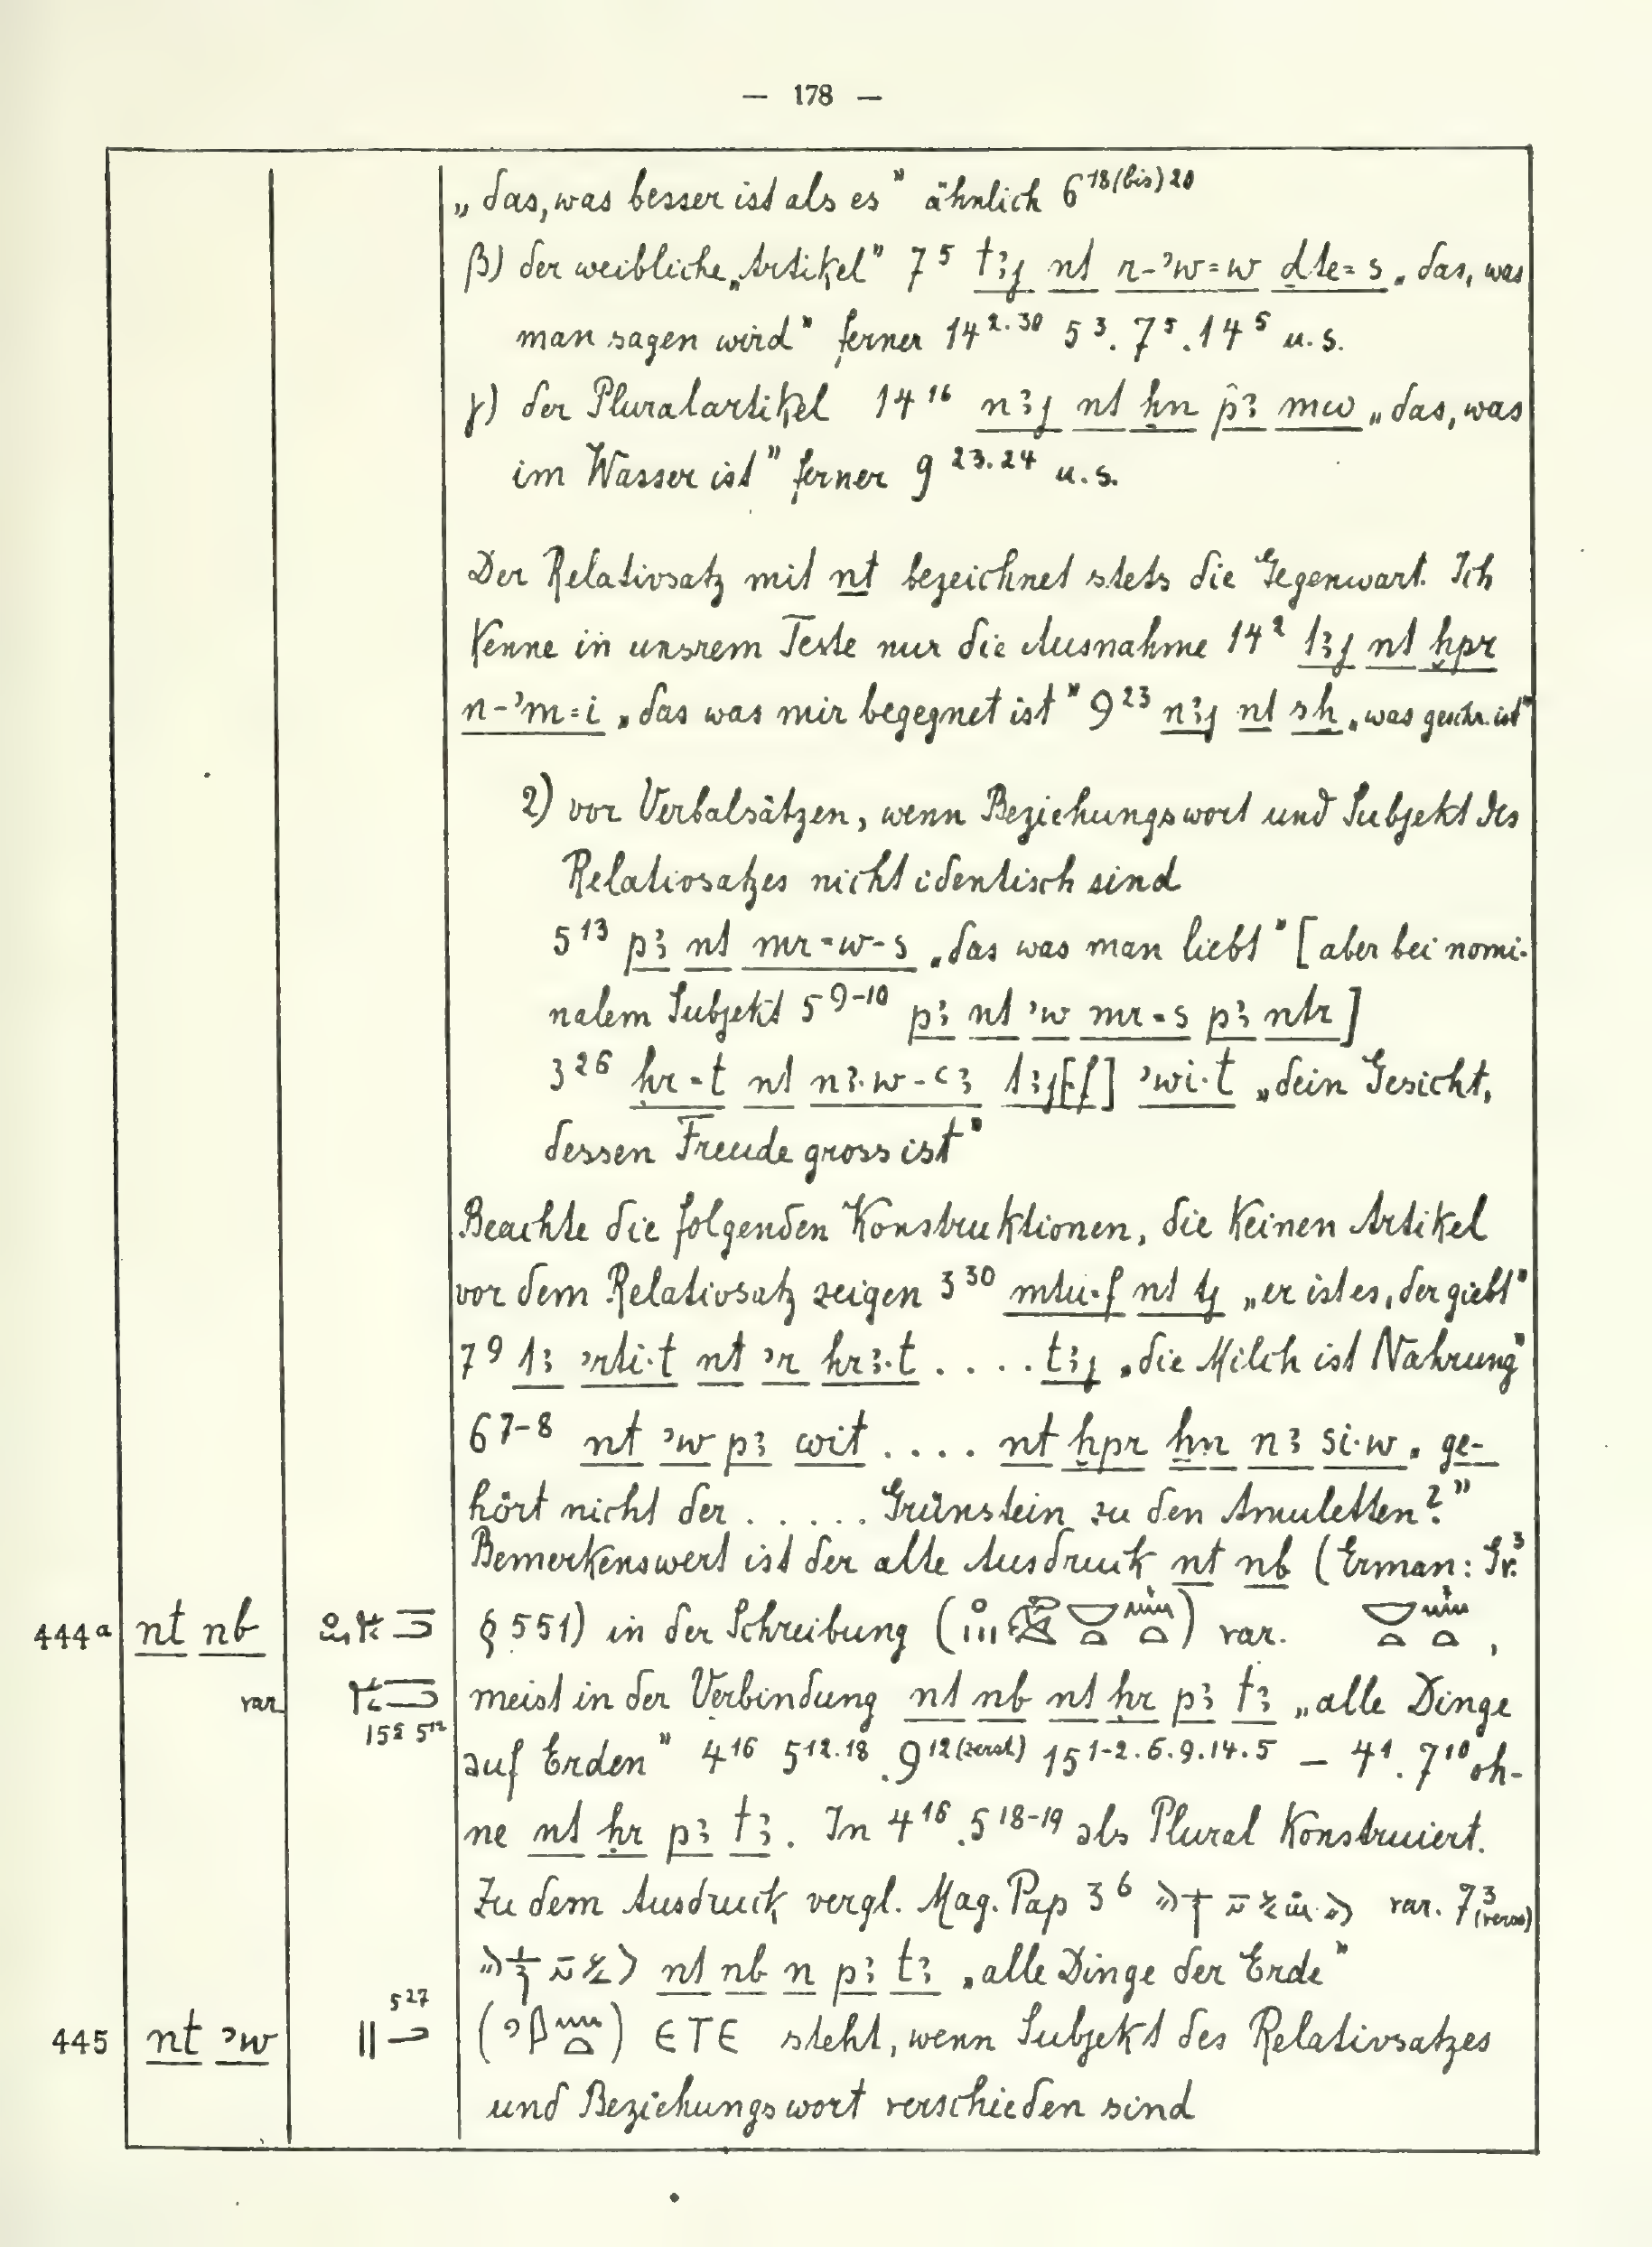 — 178 —
„das, was besser ist als es" ähnlich 6 18(bis) 20
β) der weibliche „Artikel" 7 5 tꜣj nt r-ʾw=w ḏte=s „das, was
man sagen wird" ferner 14 2.30 5 3. 7 5. 14 5 u. s.
γ) der Pluralartikel 14 16 nꜣj nt ẖn pꜣ mw „das, was
im Wasser ist" ferner 9 23.24 u. s.
Der Relativsatz mit nt bezeichnet stets die Gegenwart. Ich
kenne in unsrem Texte nur die Ausnahme 14 2 tꜣj nt ḫpr
n-ʾm=i „das was mir begegnet ist" 9 23 nꜣj nt sẖ „was geschr. ist"
2) vor Verbalsätzen, wenn Beziehungswort und Subjekt des
Relativsatzes nicht identisch sind
5 13 pꜣ nt mr=w-s „das was man liebt" [aber bei nomi-
nalem Subjekt 5 9-10 pꜣ nt ʾw mr=s pꜣ ntr]
3 26 ḥr=t nt nꜣ.w-ꜥꜣ tꜣj[f] ʾwi.t „dein Gesicht,
dessen Freude gross ist"
Beachte die folgenden Konstruktionen, die keinen Artikel
vor dem Relativsatz zeigen 3 30 mtu.f nt tj „er ist es, der giebt"
7 9 tꜣ ʾrti.t nt ʾr ḫrꜣ.t . . . . tꜣj „die Milch ist Nahrung"
6 7-8 nt ʾw pꜣ wit . . . . nt ḫpr ẖn nꜣ si.w „ge-
hört nicht der . . . . . Grünstein zu den Amuletten?"
Bemerkenswert ist der alte Ausdruck nt nb (Erman: Gr.3
444a nt nb § 551) in der Schreibung ( ) var. ,
var. 15 5 12 meist in der Verbindung nt nb nt ḥr pꜣ tꜣ „alle Dinge
auf Erden" 4 16 5 12.18 . 9 12(zerst.) 15 1-2.6.9.14.5 — 4 1. 7 10 oh-
ne nt ḥr pꜣ tꜣ. In 4 16. 5 18-19 als Plural konstruiert.
Zu dem Ausdruck vergl. Mag. Pap 3 6 var. 7 3 (verso)
nt nb n pꜣ tꜣ „alle Dinge der Erde"
445 nt ʾw 5 27 ( ) ⲈⲦⲈ steht, wenn Subjekt des Relativsatzes
und Beziehungswort verschieden sind